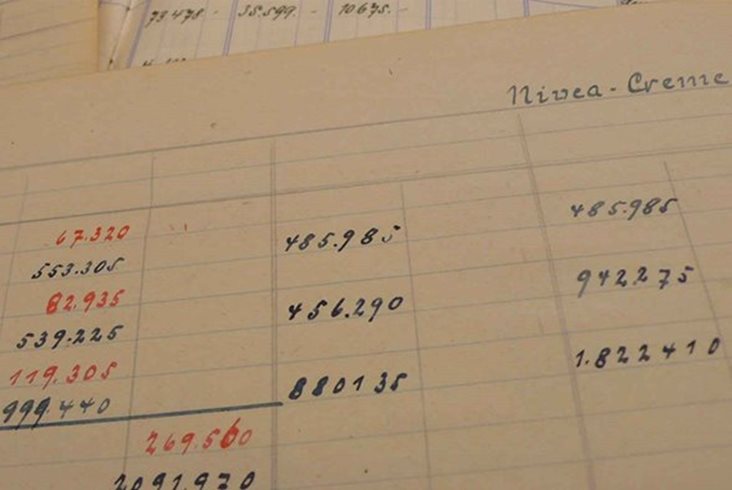 73478 - 35.599. - 10675.
Nivea-Creme
67.320 485.985 485.985
553.305
82.935 456.290 942.275
539.225
119.305 880135 1.822410
999.440
269.560
2091.970